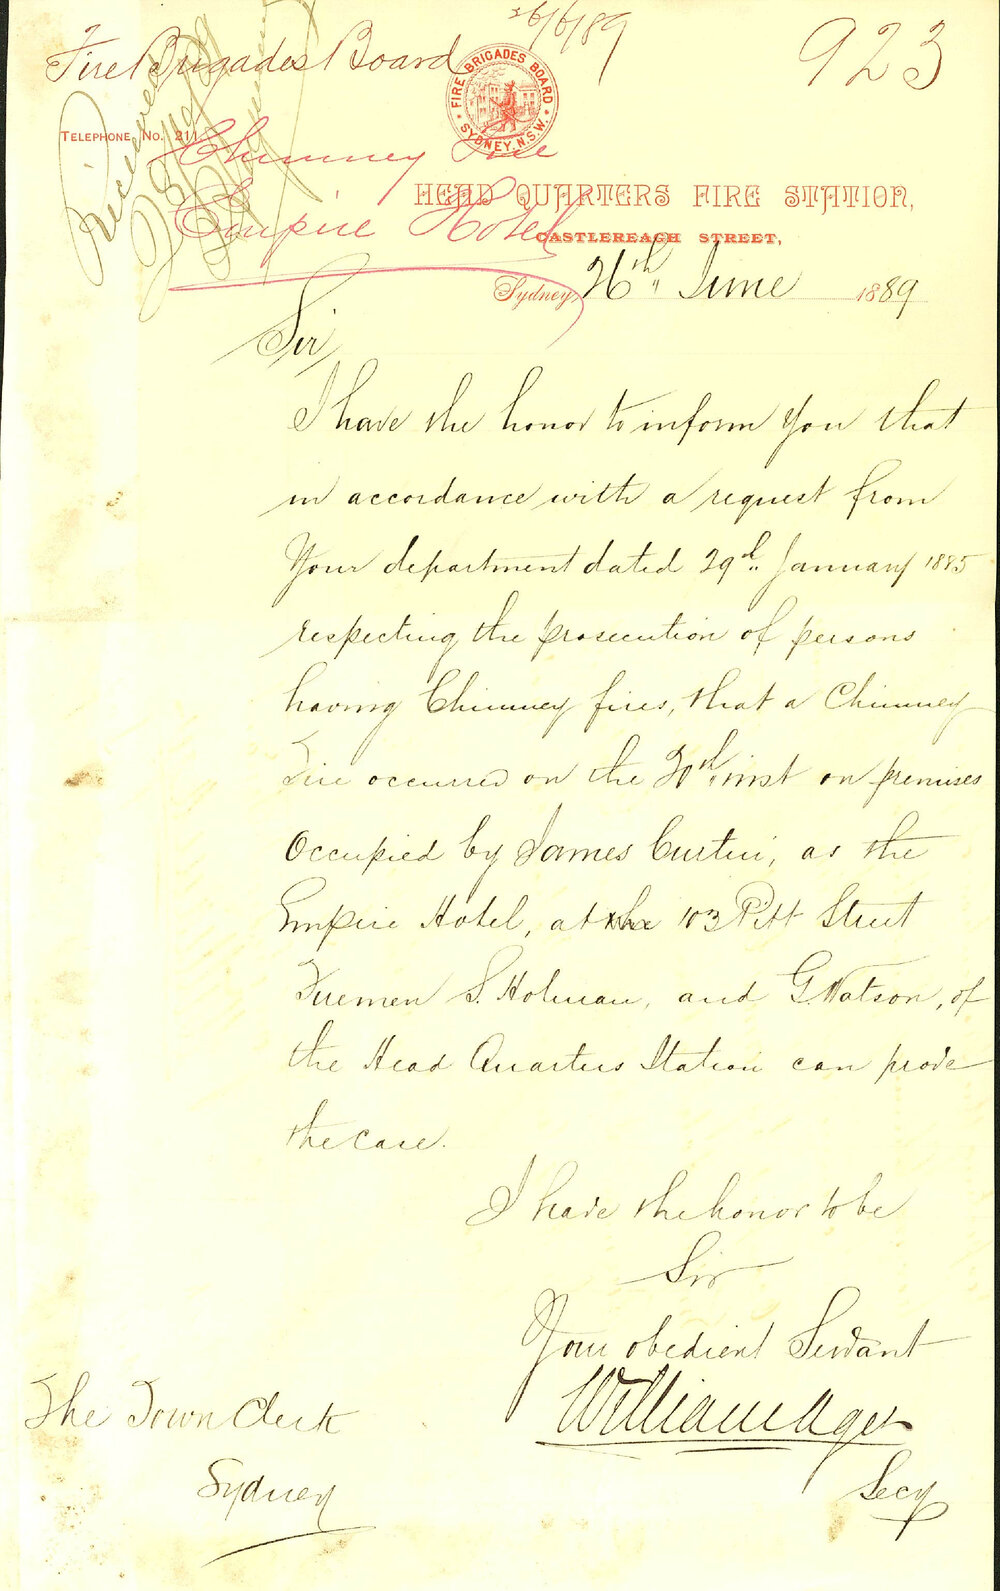 26/6/89
923
Fire Brigades Board
FIRE BRIGADES BOARD
SYDNEY. N.S.W.
TELEPHONE NO. 211
Chimney Fire
Empire Hotel
HEAD QUARTERS FIRE STATION,
CASTLEREAGH STREET,
Sydney, 26th June 1889
Sir,
I have the honor to inform You that
in accordance with a request from
Your department dated 29th January 1885
respecting the prosecution of persons
having Chimney fires, that a Chimney
Fire occurred on the 20th inst on premises
Occupied by James Curtin, as the
Empire Hotel, at the 103 Pitt Street
Firemen S. Holman, and G. Watson, of
the Head Quarters Station can prove
the case.
I have the honor to be
Sir
Your obedient Servant
William Ager
Secy
The Town Clerk
Sydney